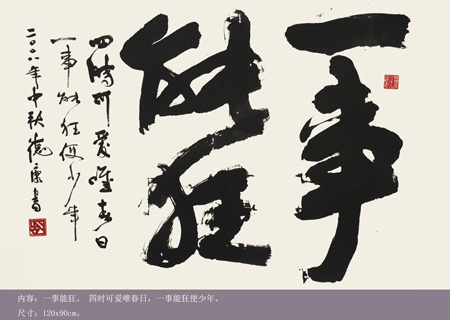 一事
能狂
四時可愛唯春日
一事能狂便少年
年中秋德康書
内容：一事能狂。 四时可爱唯春日，一事能狂便少年。
尺寸：120x90cm。